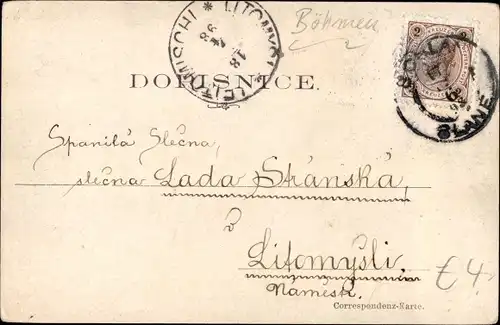 Böhmen
LEITOMISCHL * LITOMYŠL *
18
98
2 2
SCHLAN
SLANÉ
DOPISNICE.
Spanilá Slečna,
slečna Lada Stránská,
v
Litomyšli.
Náměstí.
£4
Correspondenz-Karte.